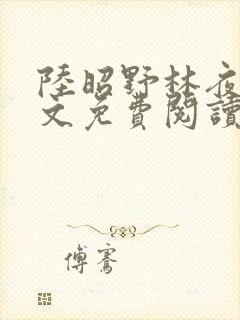 陸昭野林夜
文免費閱讀
傅騫